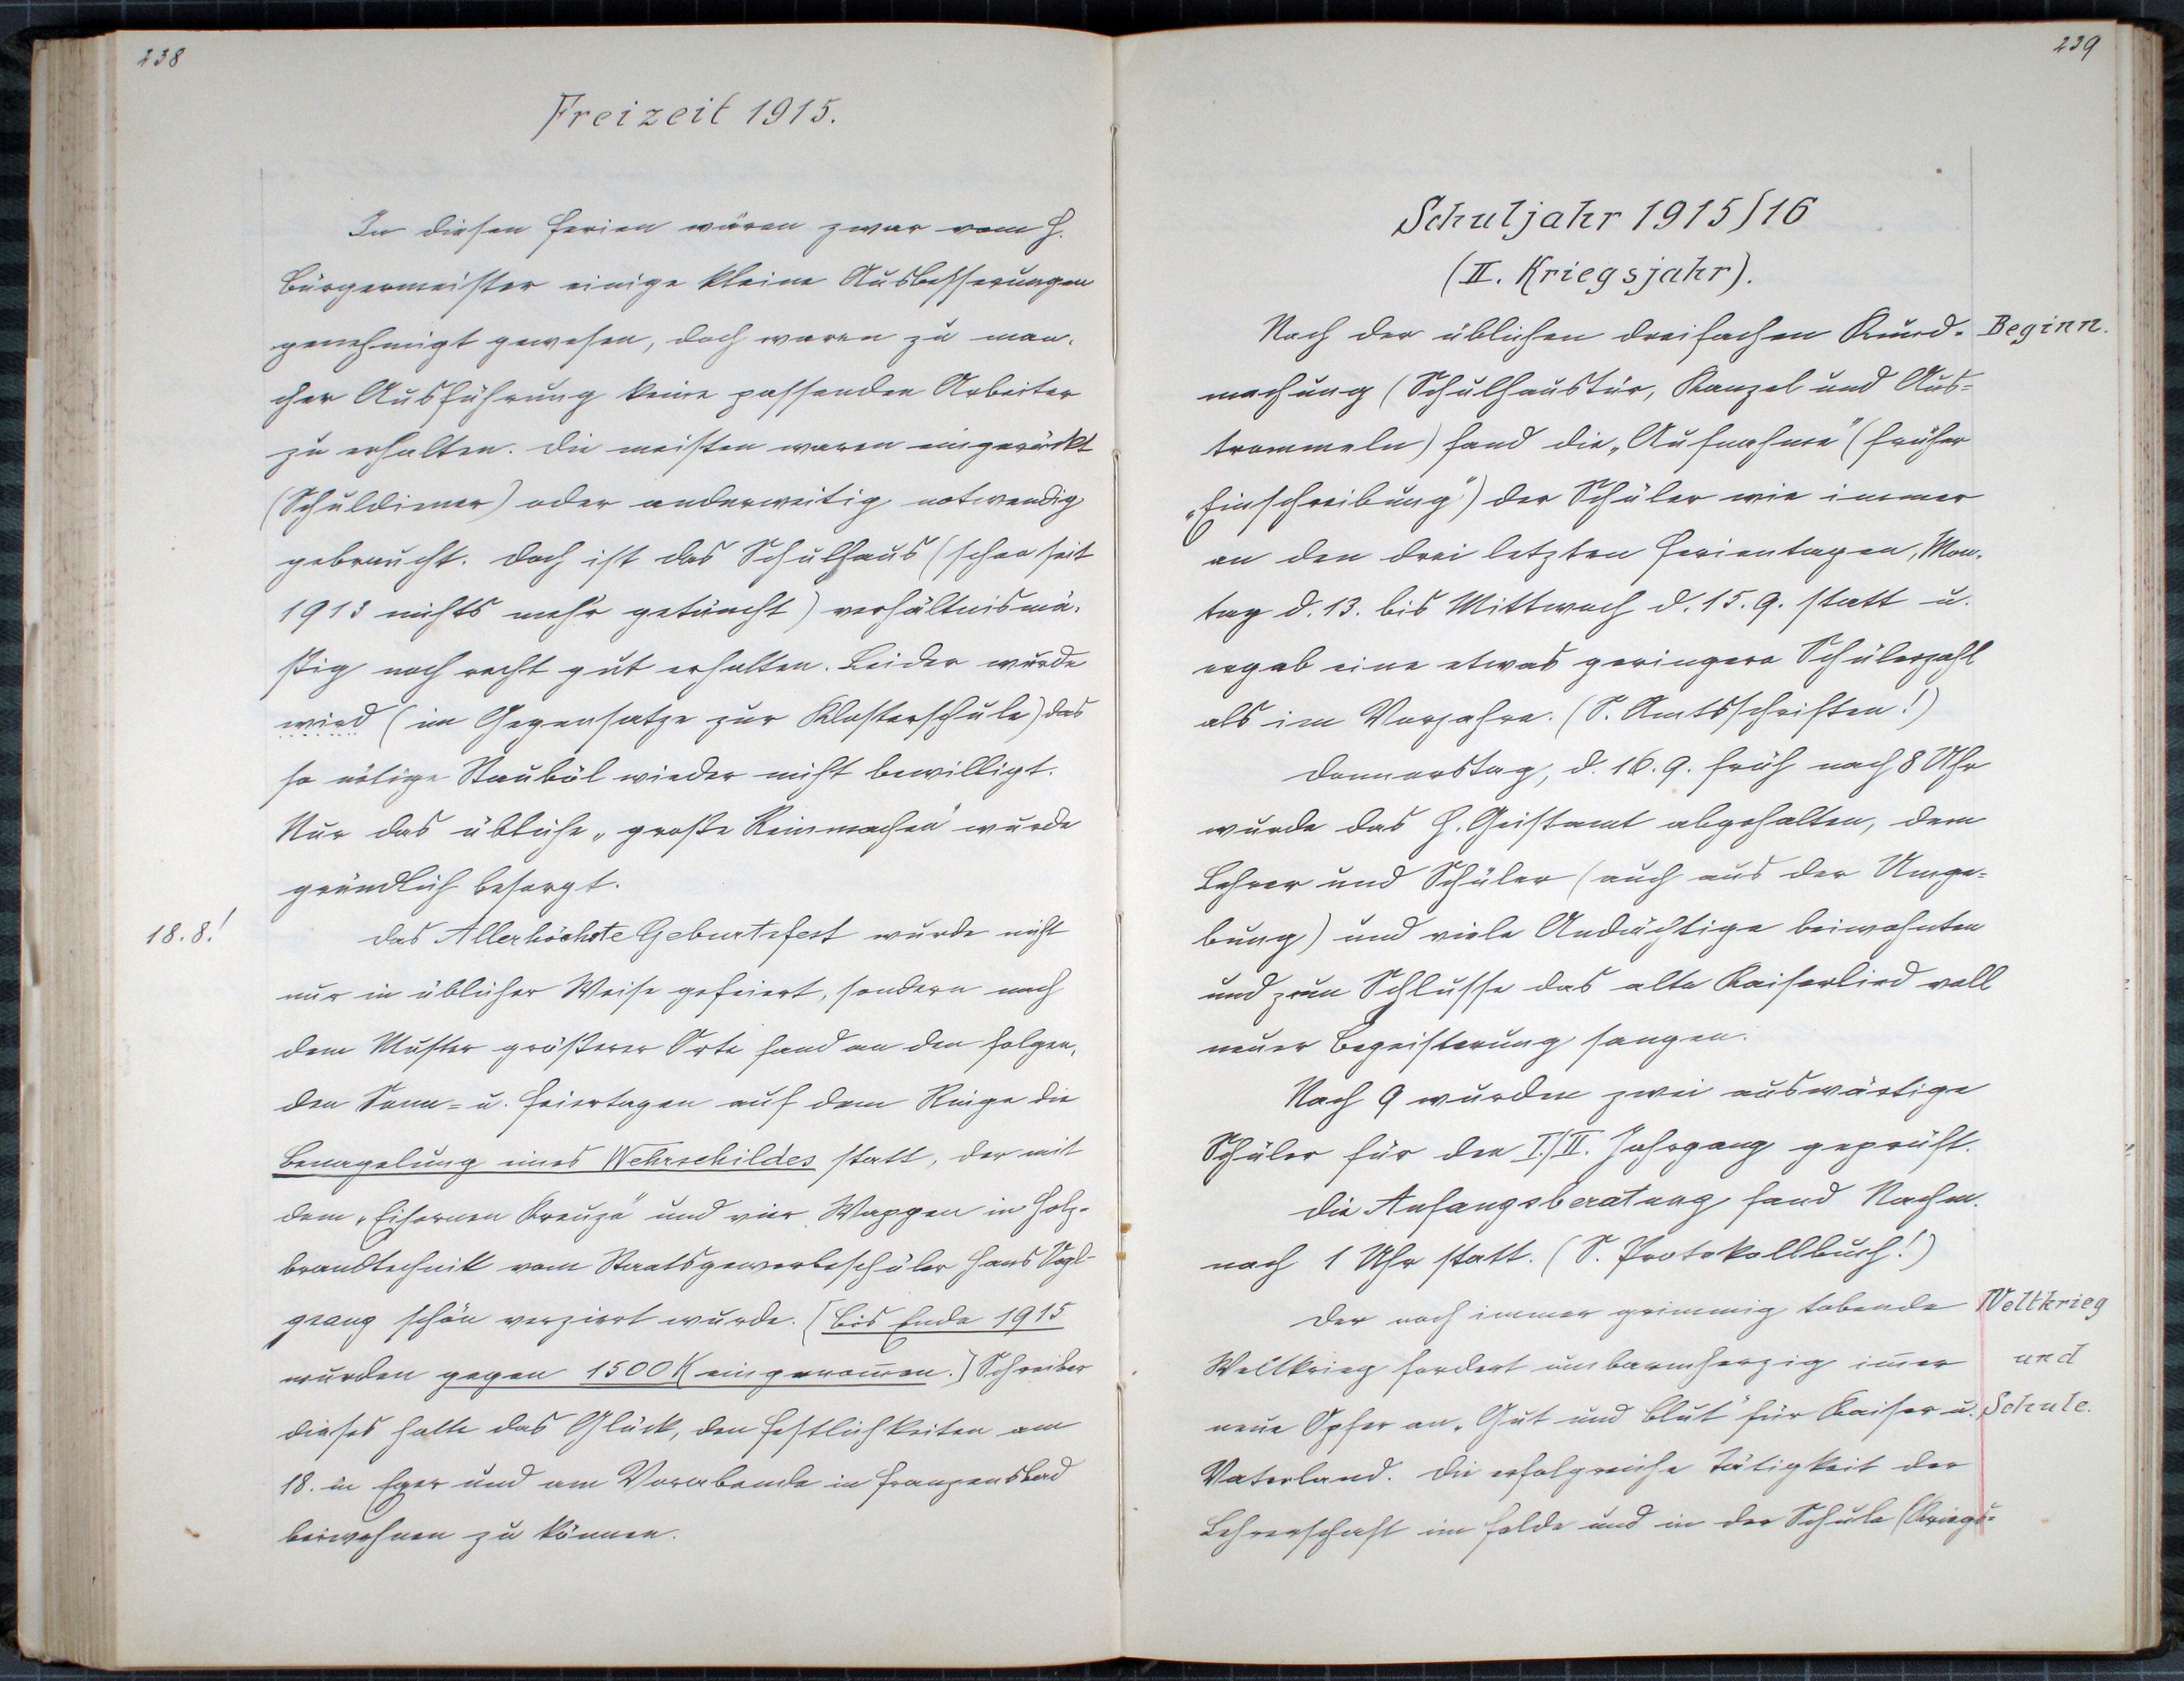 238
Freizeit 1915.
In diesen Ferien wären zwar vom H.
Bürgermeister einige kleine Ausbesserungen
genehmigt gewesen, doch waren zu man-
cher Ausführung keine passenden Arbeiter
zu erhalten. Die meisten waren eingerückt
(Schuldiener) oder anderweitig notwendig
gebraucht. Doch ist das Schulhaus (schon seit
1913 nichts mehr getüncht) verhältnismä-
ßig noch recht gut erhalten. Leider wurde
wird (im Gegensatze zur Klosterschule) das
so nötige Stauböl wieder nicht bewilligt.
Nur das übliche „große Reinmachen" wurde
gründlich besorgt.
18.8.!
Das Allerhöchste Geburtsfest wurde nicht
nur in üblicher Weise gefeiert, sondern nach
dem Muster größerer Orte fand an den folgen-
den Sonn- u. Feiertagen auf dem Ringe die
Benagelung eines Wehrschildes statt, der mit
dem „Eisernen Kreuze" und vier Wappen in Holz-
brandtechnik vom Staatsgewerbeschüler Hans
schön verziert wurde. [Bis Ende 1915
wurden gegen 1500 K eingenom̅en.] Schreiber
dieses hatte das Glück, den Festlichkeiten am
18. in Eger und am Vorabende in Franzensbad
beiwohnen zu können.
239
Schuljahr 1915/16
(II. Kriegsjahr).
Beginn.
Nach der üblichen dreifachen Kund-
machung (Schulhaustür, Kanzel und Aus-
trommeln) fand die „Aufnahme" (früher
„Einschreibung") der Schüler wie immer
an den drei letzten Ferientagen, Mon-
tag d. 13. bis Mittwoch d. 15. 9. statt u.
ergab eine etwas geringere Schülerzahl
als im Vorjahre. (S. Amtsschriften!)
Donnerstag, d. 16. 9. früh nach 8 Uhr
wurde das H. Geistamt abgehalten, dem
Lehrer und Schüler (auch aus der Umge-
bung) und viele Andächtige beiwohnten
und zum Schlusse das alte Kaiserlied voll
neuer Begeisterung sangen.
Nach 9 wurden zwei auswärtige
Schüler für den I./II. Jahrgang geprüft.
Die Anfangsberatung fand Nachm.
nach 1 Uhr statt. (S. Protokollbuch!)
Weltkrieg
und
Schule.
Der noch immer grimmig tobende
Weltkrieg fordert unbarmherzig im̅er
neue Opfer an „Gut und Blut" für Kaiser u.
Vaterland. Die erfolgreiche Tätigkeit der
Lehrerschaft im Felde und in der Schule (Kriegs-